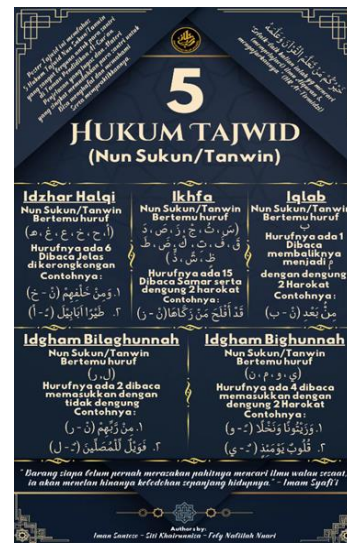 Poster Tajwid ini membahas
5 Hukum Tajwid Nun Sukun/Tanwin
خَيْرُكُمْ مَنْ تَعَلَّمَ الْقُرْآنَ وَعَلَّمَهُ
5
HUKUM TAJWID
(Nun Sukun/Tanwin)
Idzhar Halqi
Nun Sukun/Tanwin
Bertemu huruf
(أ, ح, خ, ع, غ, ه)
Hurufnya ada 6
Dibaca Jelas
di kerongkongan
Contohnya :
١. وَمِنْ خَلْفِهِمْ (نْ - خ)
٢. طَيْرًا أَبَابِيْلَ (ـً - أ)
Ikhfa
Nun Sukun/Tanwin
Bertemu huruf
Hurufnya ada 15
Dibaca Samar serta
dengung 2 harokat
Contohnya :
قَدْ أَفْلَحَ مَنْ زَكَّاهَا (نْ - ز)
Iqlab
Nun Sukun/Tanwin
Bertemu huruf
ب
Hurufnya ada 1
Dibaca
membaliknya
menjadi م
dengan dengung
2 Harokat
Contohnya :
مِنْ بَعْدِ (نْ - ب)
Idgham Bilaghunnah
Nun Sukun/Tanwin
Bertemu huruf
(ل, ر)
Hurufnya ada 2 dibaca
memasukkan dengan
tidak dengung
Contohnya :
١. مِنْ رَبِّهِمْ (نْ - ر)
٢. فَوَيْلٌ لِلْمُصَلِّينَ (ـٌ - ل)
Idgham Bighunnah
Nun Sukun/Tanwin
Bertemu huruf
(ي, و, م, ن)
Hurufnya ada 4 dibaca
memasukkan dengan
dengung 2 Harokat
Contohnya :
١. وَزَيْتُونًا وَنَخْلًا (ـً - و)
٢. قُلُوبٌ يَوْمَئِذٍ (ـٌ - ي)
" Barang siapa belum pernah merasakan pahitnya mencari ilmu walau sesaat,
ia akan menelan hinanya kebodohan sepanjang hidupnya." - Imam Syafi'i
Authors by:
Iman Santoso - Siti Khairunniza - Fely Nafiilah Nuari